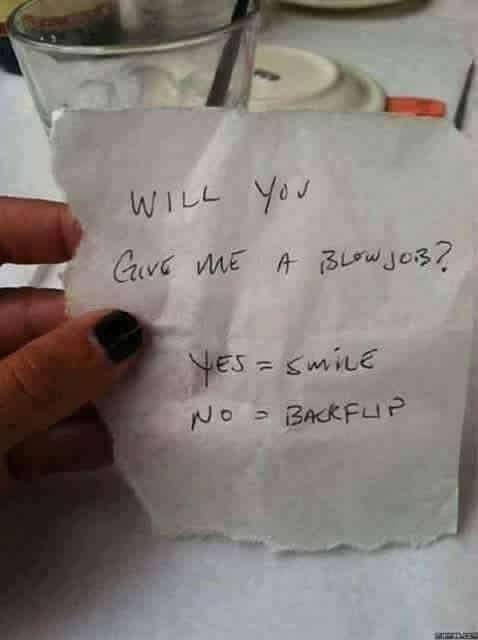 WILL YOU
GIVE ME A BLOWJOB?
YES = SMILE
NO = BACKFLIP